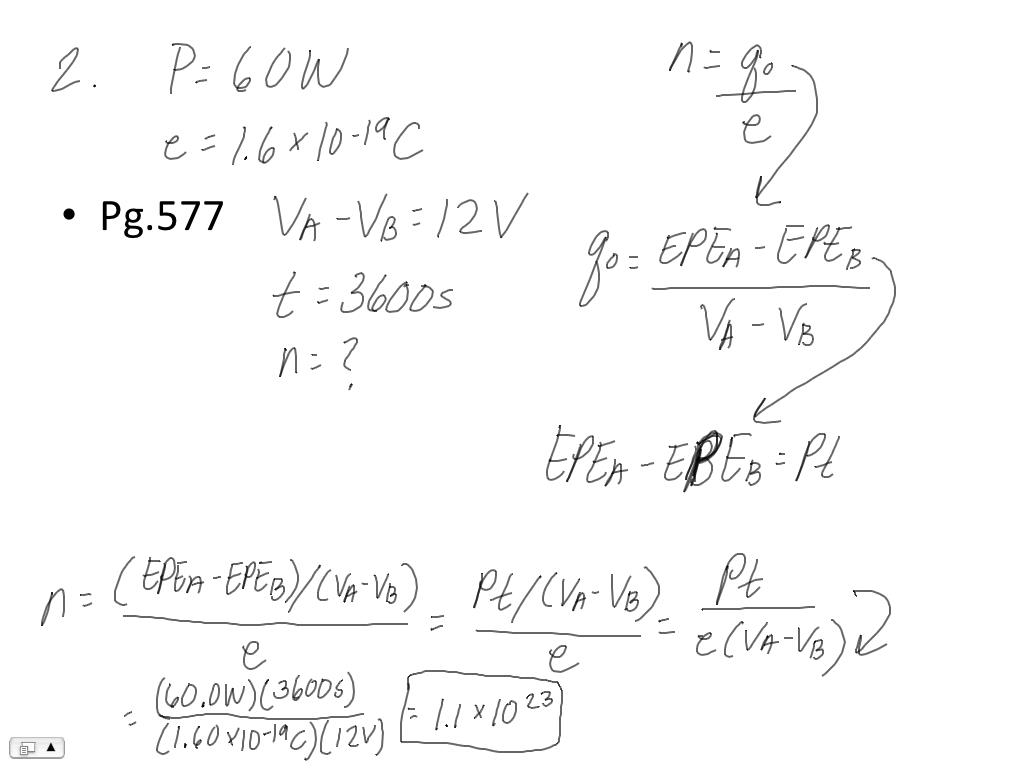 2. P = 60W
e = 1.6 × 10^-19 C
• Pg.577 V_A - V_B = 12V
t = 3600s
n = ?
n = q_0 / e
q_0 = (EPE_A - EPE_B) / (V_A - V_B)
EPE_A - EPE_B = Pt
n = ((EPE_A - EPE_B)/(V_A - V_B)) / e = (Pt/(V_A - V_B)) / e = Pt / (e(V_A - V_B))
= (60.0W)(3600s) / (1.60×10^-19C)(12V) = 1.1 × 10^23